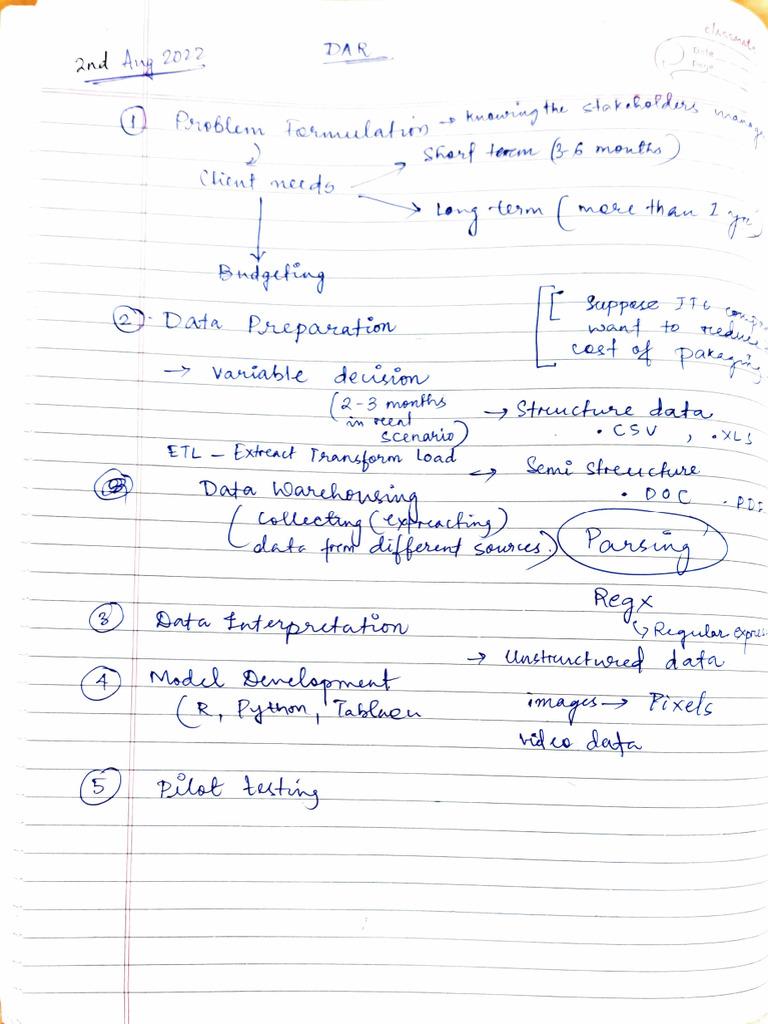 classmate
Date
Page
2nd Aug 2022
DAR
① Problem Formulation → Knowing the stakeholders
Client needs
Short term (3-6 months)
Long term (more than 1
Budgeting
② Data Preparation
[[ Suppose ITC
want to reduce
cost of
→ Variable decision
(2-3 months
in
scenario)
→ Structure data
• CSV , • XLS
ETL - Extract Transform Load
→ Semi Structure
• DOC
Data Warehousing
(Collecting (expreaching)
data from different sources.)
Parsing
Regx
↳ Regular
③ Data Interpretation
→ Unstructured data
images → Pixels
video data
④ Model Development
(R, Python, Tablaeu
⑤ Pilot testing